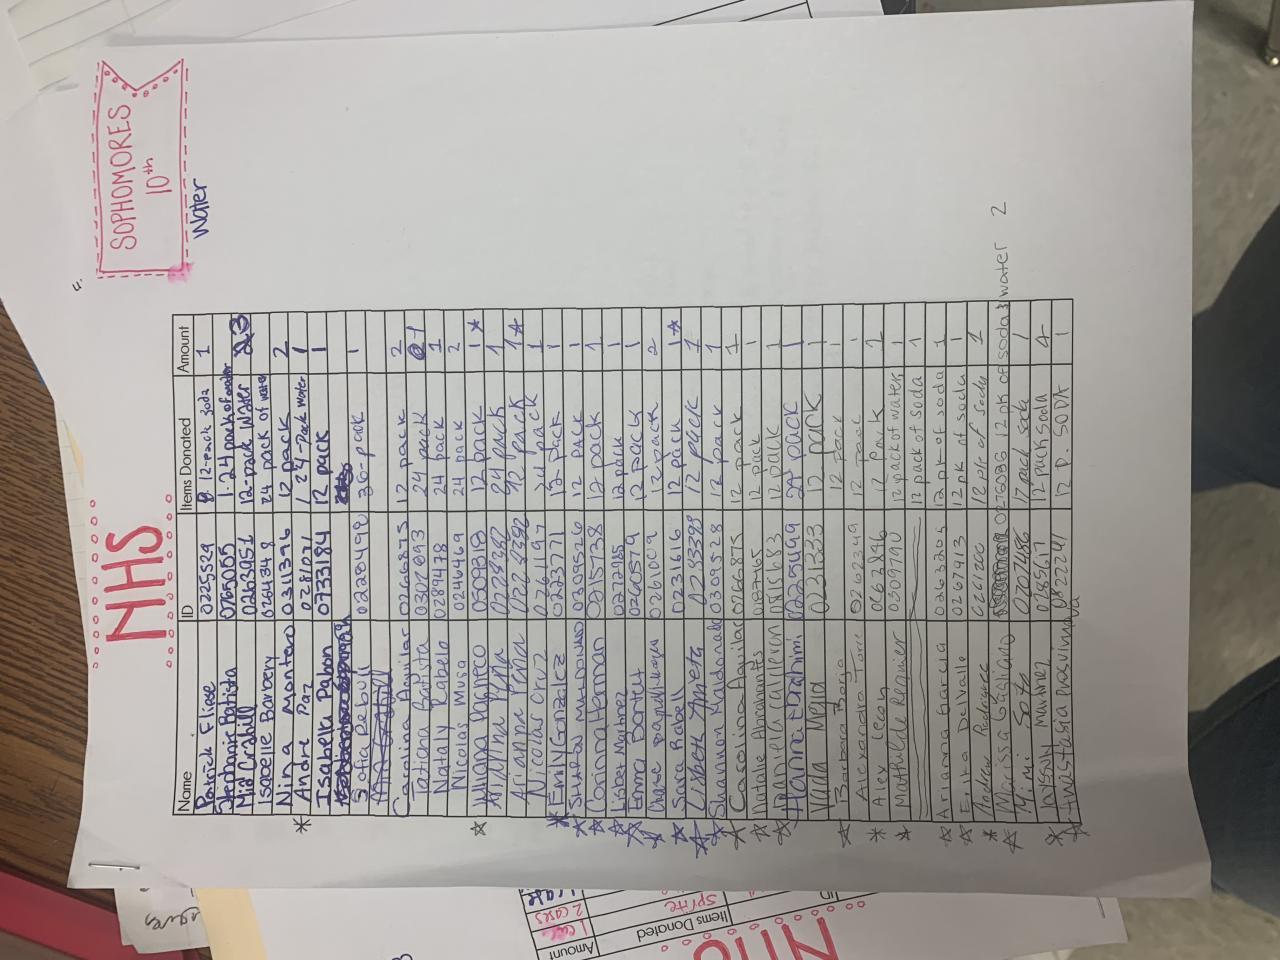 NHS
SOPHOMORES
10th
Water
Name ID Items Donated Amount
Patrick Eliese 0225329 12-pack soda 1
Stephanie Batista 0765055 1.24 pack of water
Mia Crahill 0263951 12-pack Water 3
Isabelle Barbery 0264348 24 pack of water
Nina Montero 0311396 12 pack 2
* Andre Paz 0281071 1 24-Pack Water 1
Isabella Pabon 0733184 12 pack 1
Sofia Rebul 0280498 36-pack 1
Carolina Aguilar 0266875 12 pack 2
Tatiena Batista 0307093 24 pack 1
Nataly Rabelo 0289478 24 pack 1
Nicolas Musa 0246469 24 pack 2
☆ Juliana Pacheco 0509318 12 pack 1*
Arianna Peña 24 pack 1
Arianna Peña 12 pack 1☆
Nicolas Cruz 0261197 24 pack 1
* Emily Gonzalez 0223771 12-pack 1
☆ Shaina 0309526 12 PACK 1
☆ Corinna Herman 0715738 12 pack 1
☆ Lisbet Martinez 0222985 12 pack 1
☆ 0260579 12 pack 1
☆ Chase 0261009 12 pack 2
☆ Sara Rabell 0231616 12 pack 1☆
☆ Lizbeth 0233398 12 pack 1
☆ Shannon Maldonado 0309528 12 pack 1
☆ Carolina Aguilar 0266875 12 pack 1
☆ Natalie Abramantes 12 pack 1
☆ Daniela Calleron 0815683 12 pack 1
Hanna Ebrahimi 0225499 24 pack 1
Vada Mejia 0231333 12 pack 1
☆ Barbara Borja 12 pack 1
Alexandra Torre 0262349 12 pack 1
* Alex Leon 0662896 12 pack 1
* Mathilde Regnier 0309790 12 pack of water 1
12 pack of soda 1
☆ Arianna Garcia 0263205 12 pk of soda 1
☆ Erika Delvalle 0267413 12 pk of soda 1
* Andrew Rodriguez 0261200 12 pk of soda 1
Marissa Gagliano 0276086 12 pk of soda & water 2
☆ Mimi Soto 0207486 12 pack soda 1
* 0285617 12 pack soda 4
☆ Anastasia 0322241 12 P. SODA 1
Amount
Items Donated
ID
1 case
2 cases
Sprite
NHS